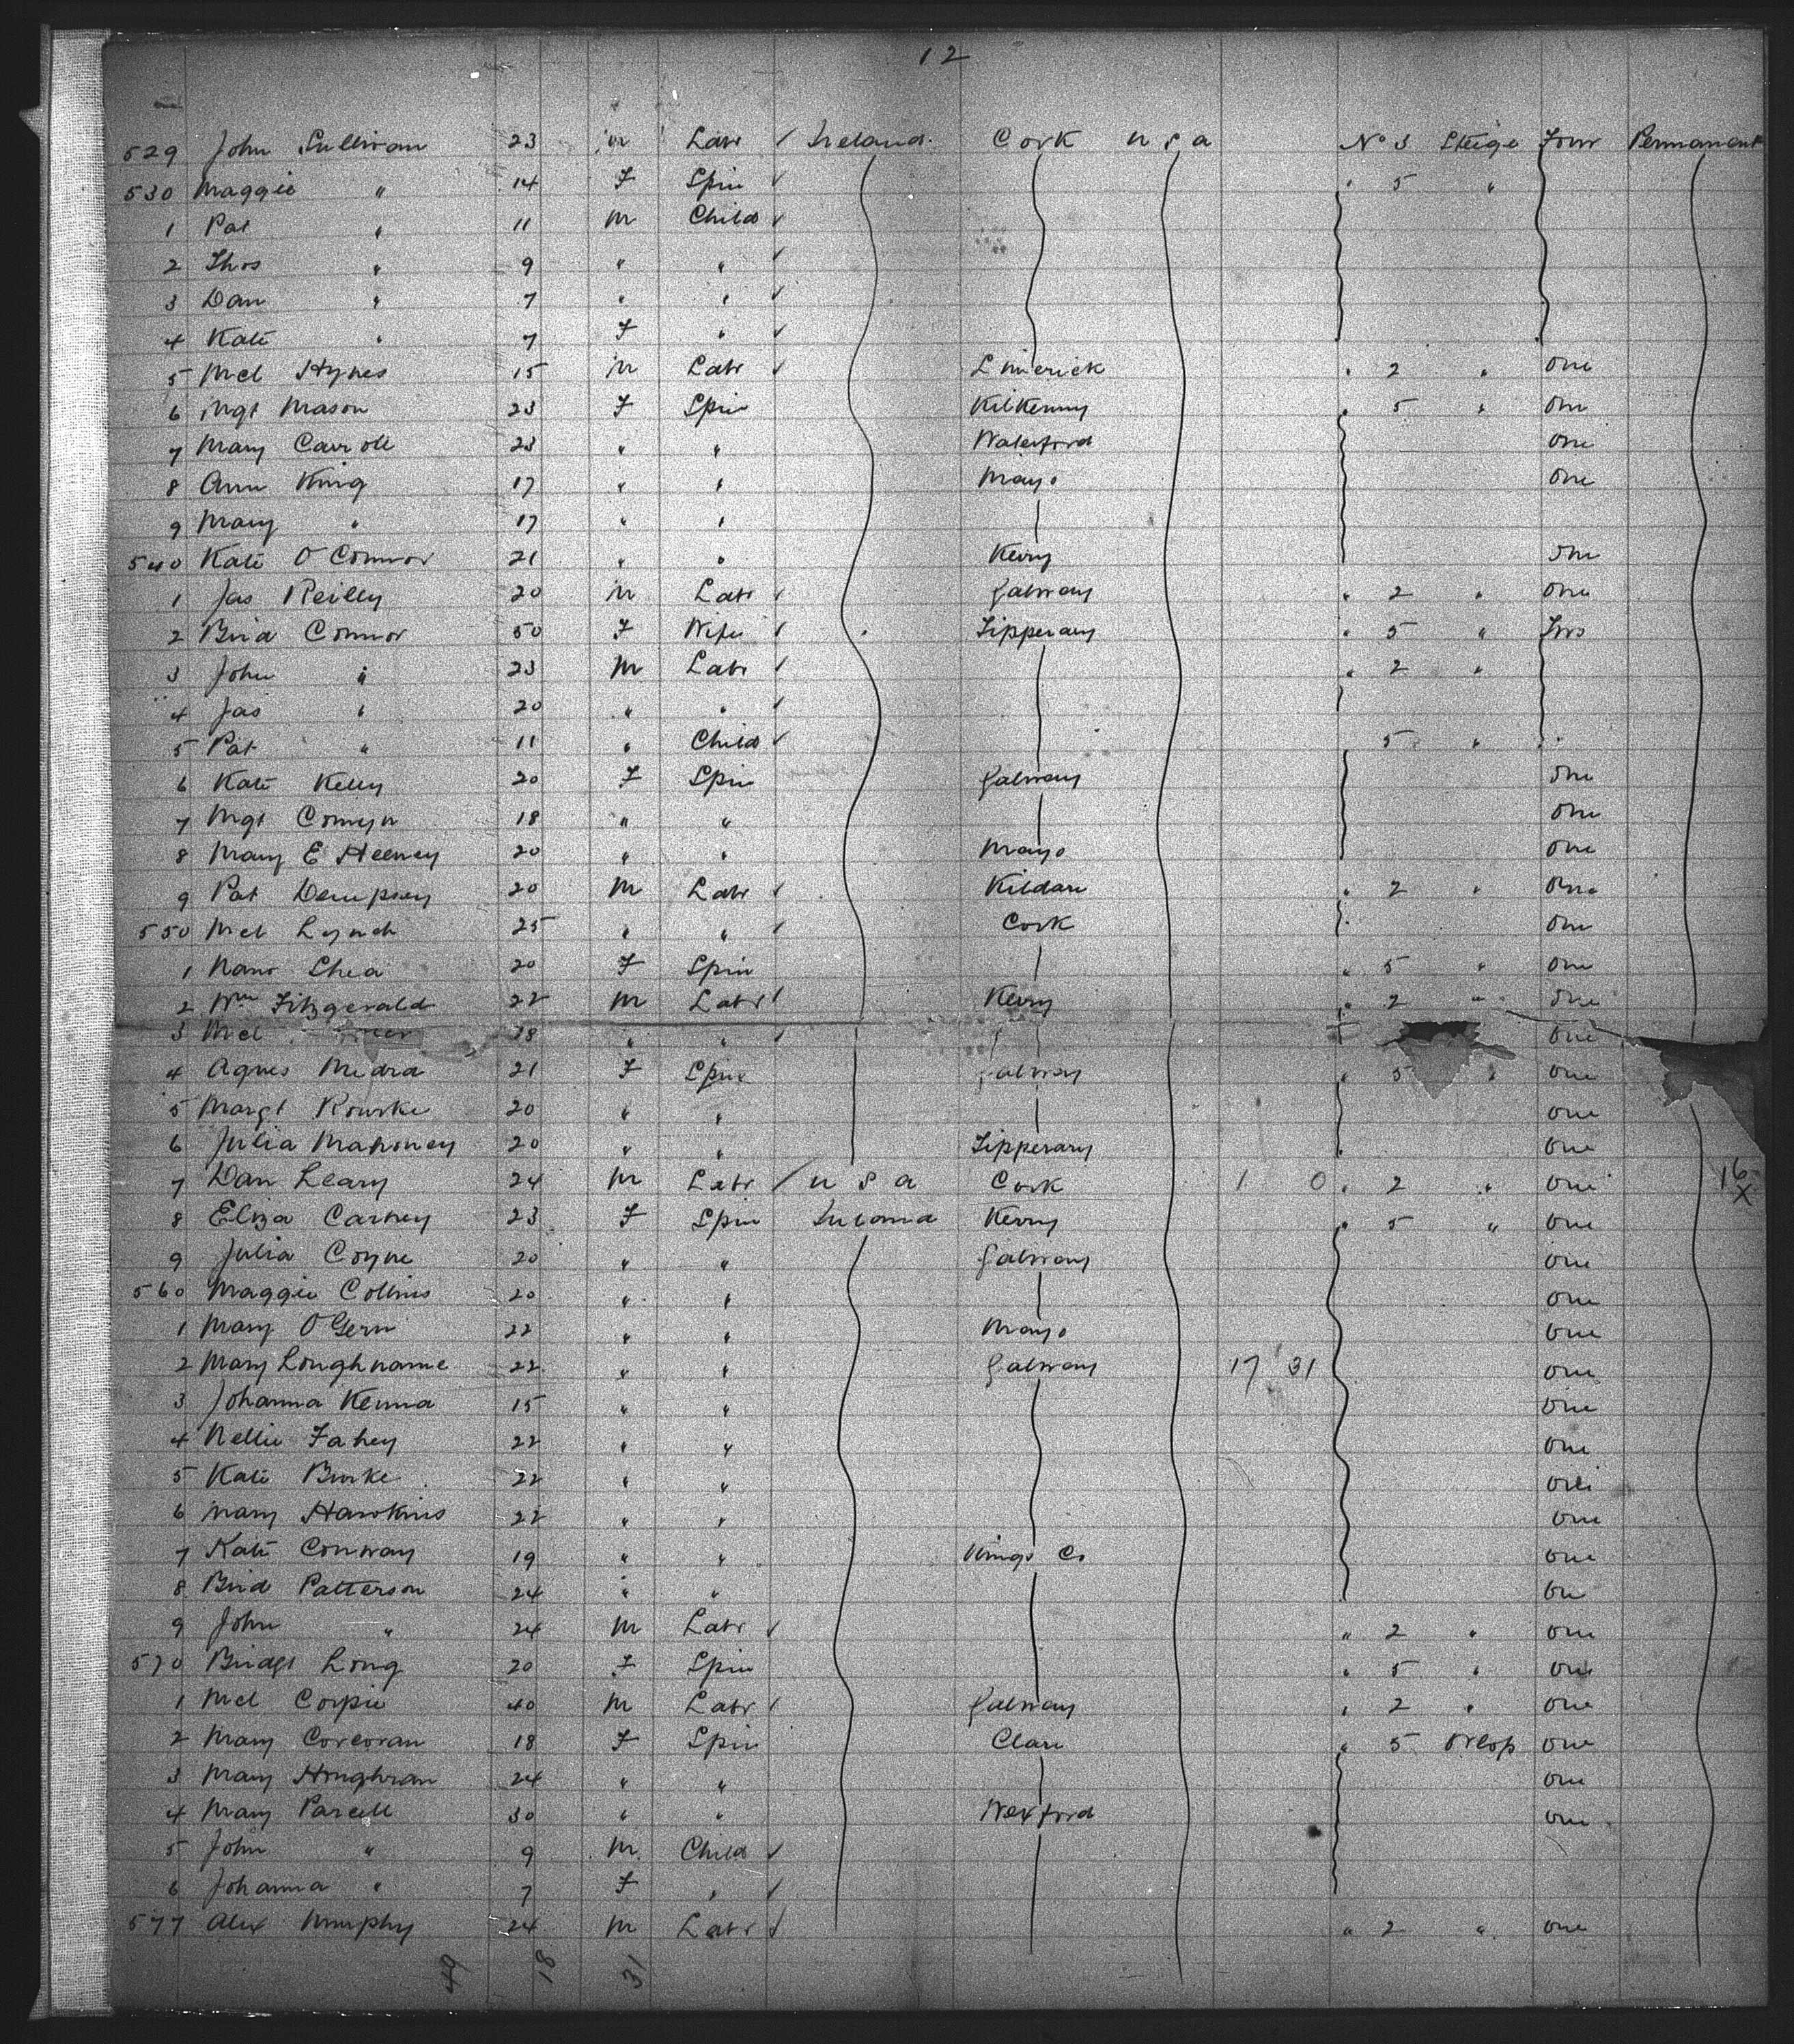 12
529 John Sullivan 23 m Labr ✓ Ireland. Cork U S A No 3 Steige Four Permanent
530 Maggie " 14 F Spin ✓ " 5 "
1 Pat " 11 M Child ✓
2 Thos " 9 " " ✓
3 Dan " 7 " " ✓
4 Kate " 7 F " ✓
5 Mcl Hynes 15 M Labr ✓ Limerick " 2 " One
6 Mgt Mason 23 F Spin Kilkenny " 5 " One
7 Mary Carroll 23 " " Waterford One
8 Ann King 17 " " Mayo One
9 Mary " 17 " "
540 Kate O Connor 21 " " Kerry One
1 Jas Reilly 20 M Labr ✓ Galway " 2 " One
2 Brid Connor 50 F Wife ✓ Tipperary " 5 " Two
3 John " 23 M Labr ✓ " 2 "
4 Jas " 20 " " ✓
5 Pat " 11 " Child ✓ 5 "
6 Kate Kelly 20 F Spin Galway One
7 Mgt Comeyn 18 " " One
8 Mary E Heeney 20 " " Mayo One
9 Pat Dempsey 20 M Labr ✓ Kildare " 2 " One
550 Mcl Lynch 25 " " ✓ Cork One
1 Nano Shea 20 F Spin " 5 " One
2 Wm Fitzgerald 22 M Labr ✓ Kerry " 2 " One
3 Mcl 28 " " ✓ One
4 Agnes Madra 21 F Spin Galway " 5 " One
5 Margt Rourke 20 " " One
6 Julia Mahoney 20 " " Tipperary One
7 Dan Leary 24 M Labr ✓ U S A Cork 1 0 " 2 " One 16 X
8 Eliza Carney 23 F Spin Ireland Kerry " 5 " One
9 Julia Coyne 20 " " Galway One
560 Maggie Collins 20 " " One
1 Mary O'Gern 22 " " Mayo One
2 Mary Loughnane 22 " " Galway 17 31 One
3 Johanna Kenna 15 " " One
4 Nellie Fahey 22 " " One
5 Kate Burke 22 " " One
6 Mary Hawkins 22 " " One
7 Kate Conway 19 " " Kings Co One
8 Brid Patterson 24 " " On
9 John " 24 M Labr ✓ " 2 " One
570 Bridgt Long 20 F Spin " 5 " One
1 Mcl Corpie 40 M Labr ✓ Galway " 2 " One
2 Mary Corcoran 18 F Spin Clare " 5 Orlop One
3 Mary Houghran 24 " " One
4 Mary Parcell 30 " " Wexford One
5 John " 9 M Child ✓
6 Johanna " 7 F " ✓
577 Alex Murphy 24 M Labr ✓ " 2 " One
49 18 31